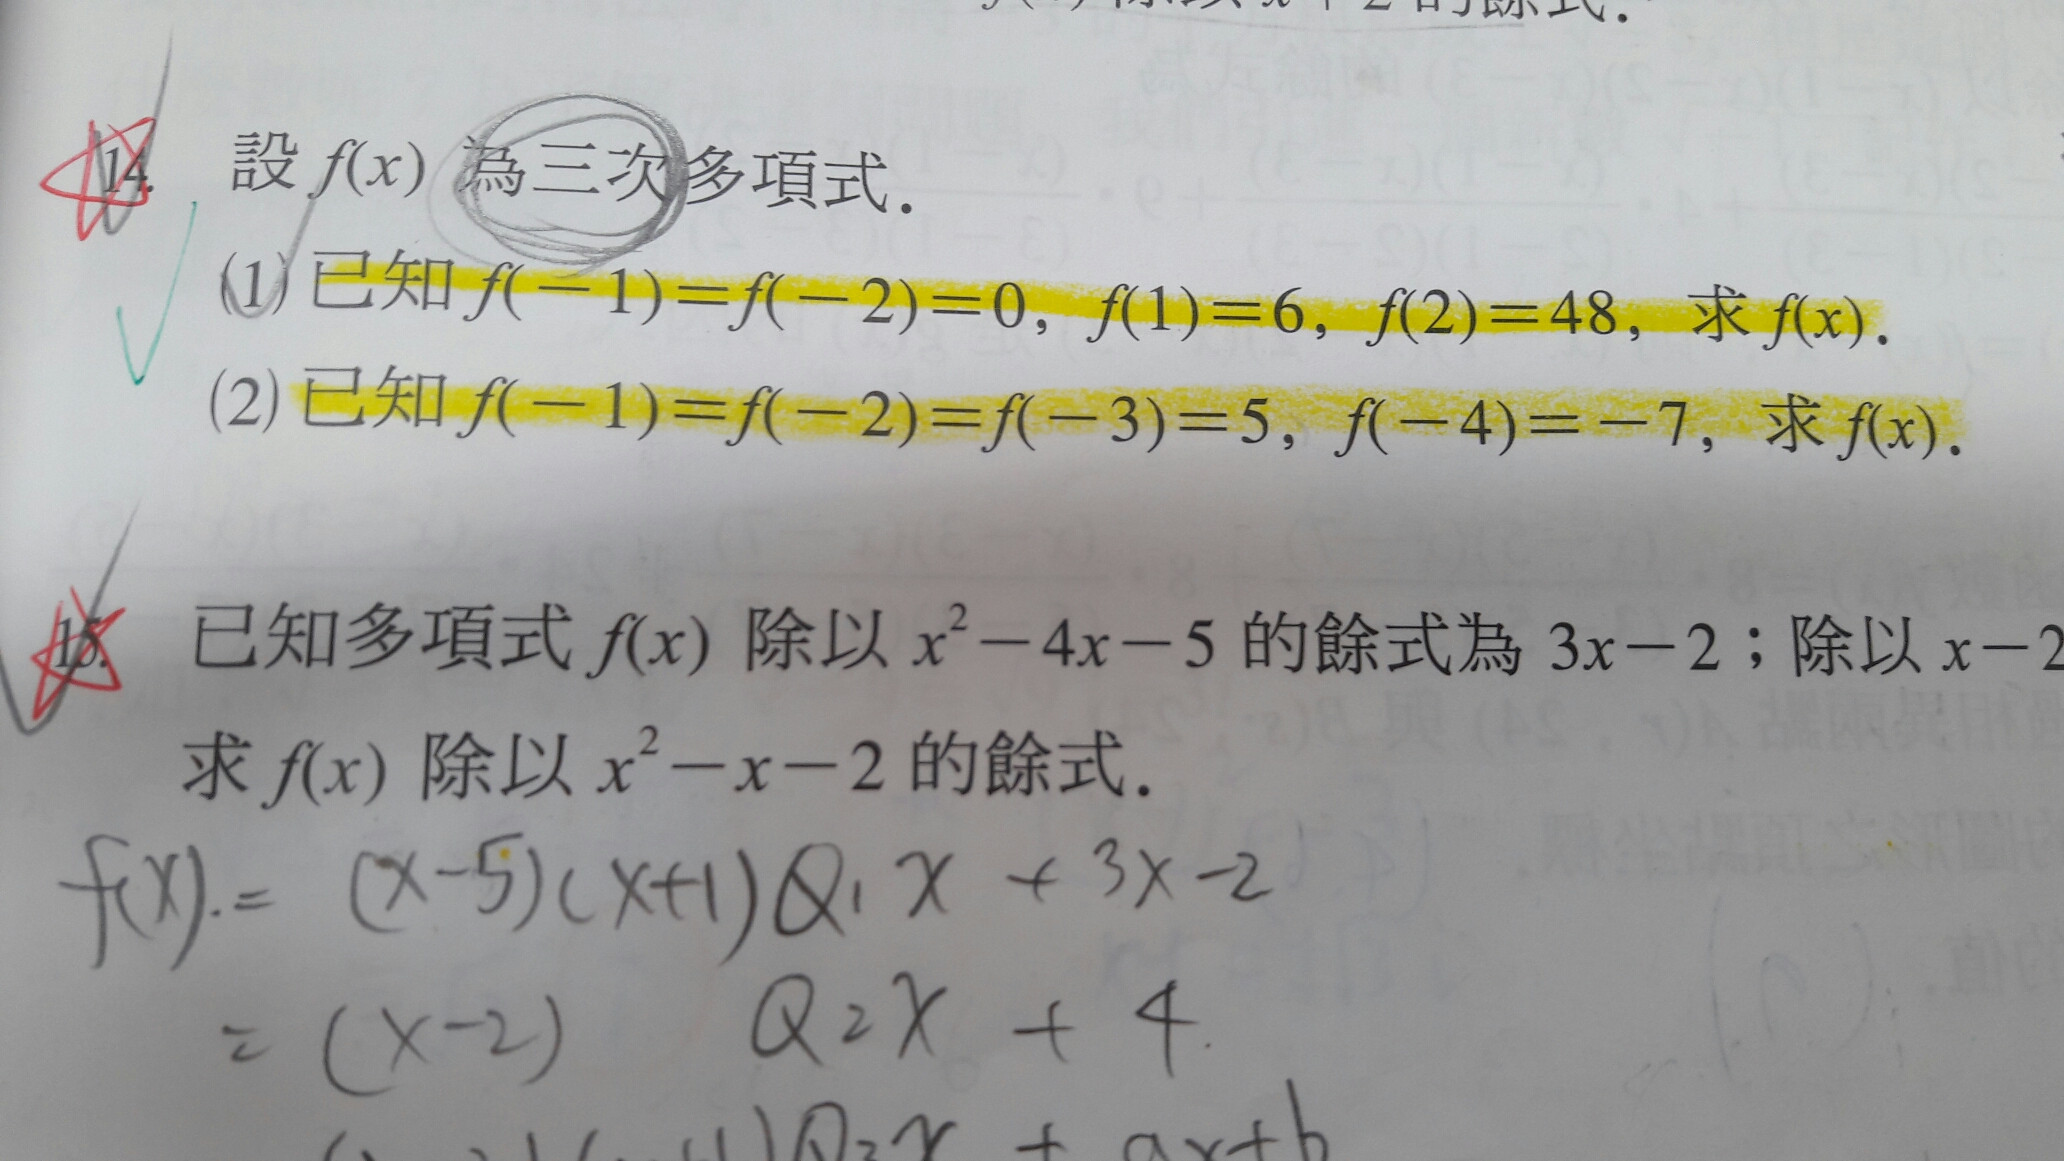 除以 x+2 的餘式.
14. 設 f(x) 為三次多項式.
(1) 已知 f(-1)=f(-2)=0, f(1)=6, f(2)=48, 求 f(x).
(2) 已知 f(-1)=f(-2)=f(-3)=5, f(-4)=-7, 求 f(x).
15. 已知多項式 f(x) 除以 x²-4x-5 的餘式為 3x-2；除以 x-2
求 f(x) 除以 x²-x-2 的餘式.
f(x).= (x-5)(x+1)Q₁x + 3x-2
= (x-2) Q₂x + 4.
+ ax+b